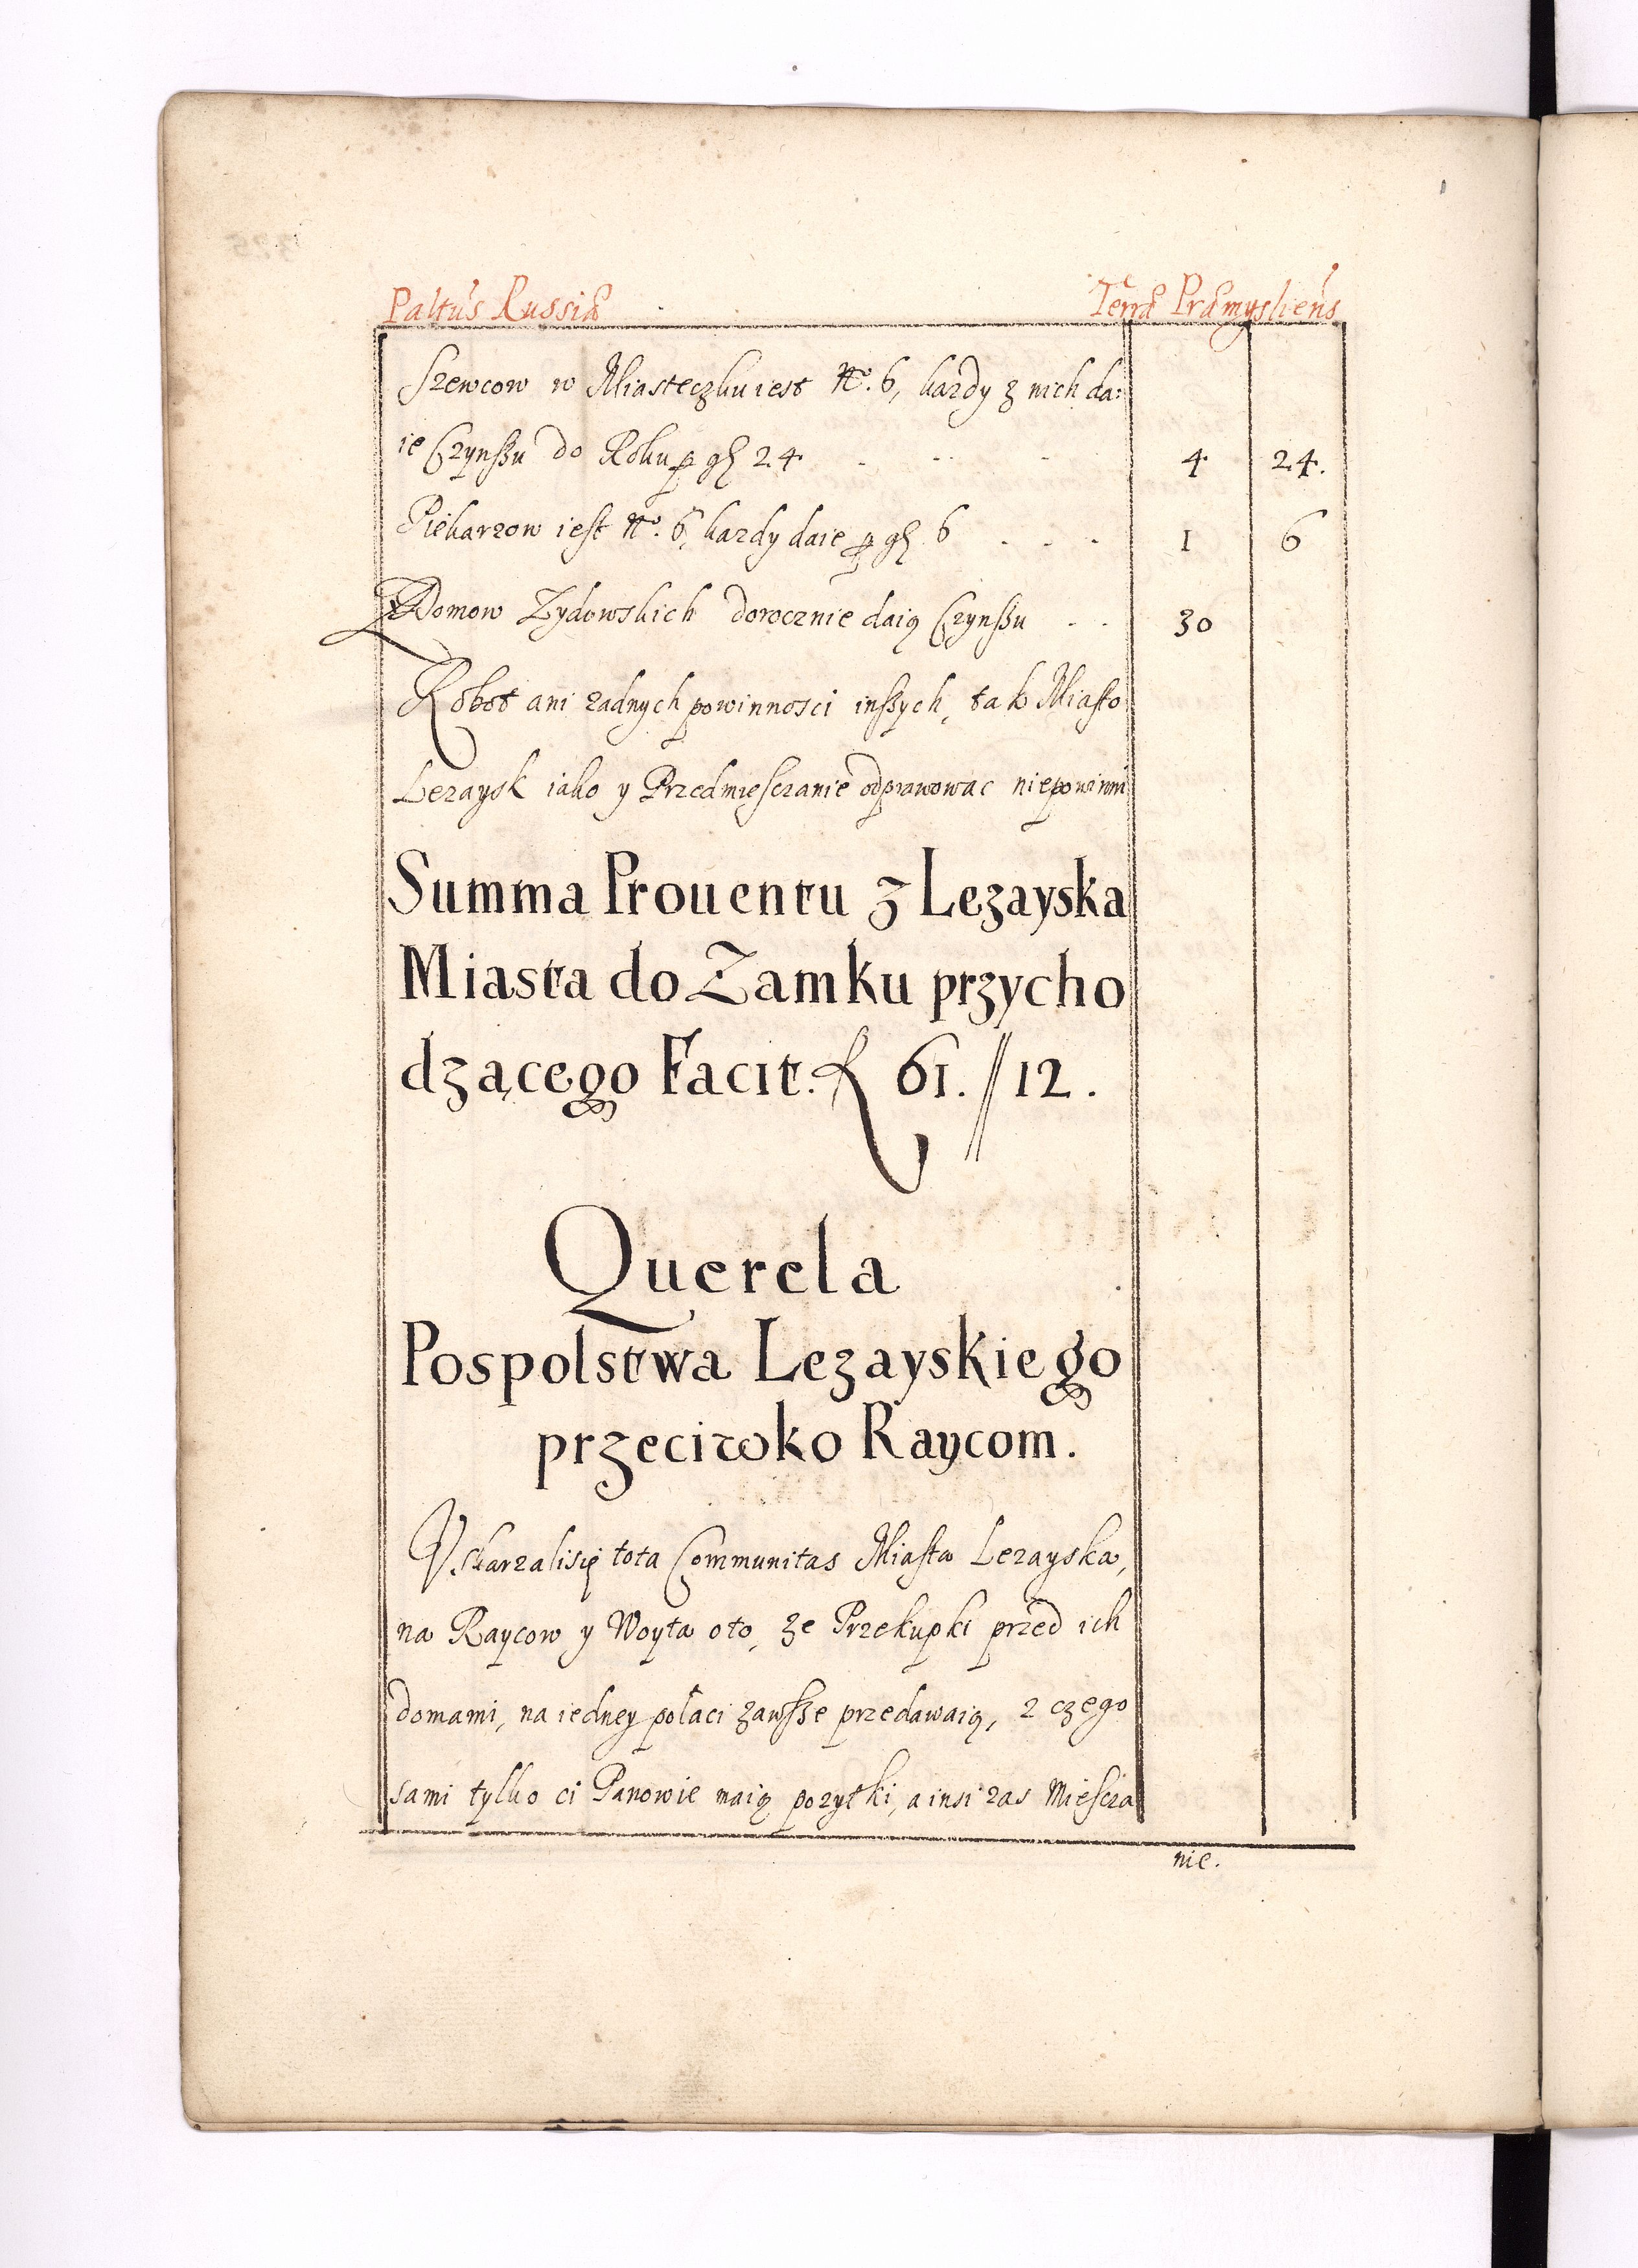 Paltus Russiæ Terræ Præmysliens
Szewcow w Miasteczku iest No. 6, kazdy z nich da:
ie Czynszu do Roku p gr 24 . . . . 4 24.
Piekarzow iest No. 6, kazdy daie p gr 6 . . . 1 6
Z Domow Zydowskich dorocznie daią Czynszu . . 30
Robot ani zadnych powinnosci inszych, tak Miasto
Lezaysk iako y Przedmiesczanie odprawowac niepowinni
Summa Prouentu z Lezayska
Miasta do Zamku przycho
dzącego Facit. f 61. // 12.
Querela
Pospolstwa Lezayskiego
przeciwko Raycom.
Vskarzalisię tota Communitas Miasta Lezayska,
na Raycow y Woyta oto, ze Przekupki przed ich
domami, na iedney połaci zawsze przedawaią, z czego
sami tylko ci Panowie maią pozytki, a insi zas Miescza
nie.